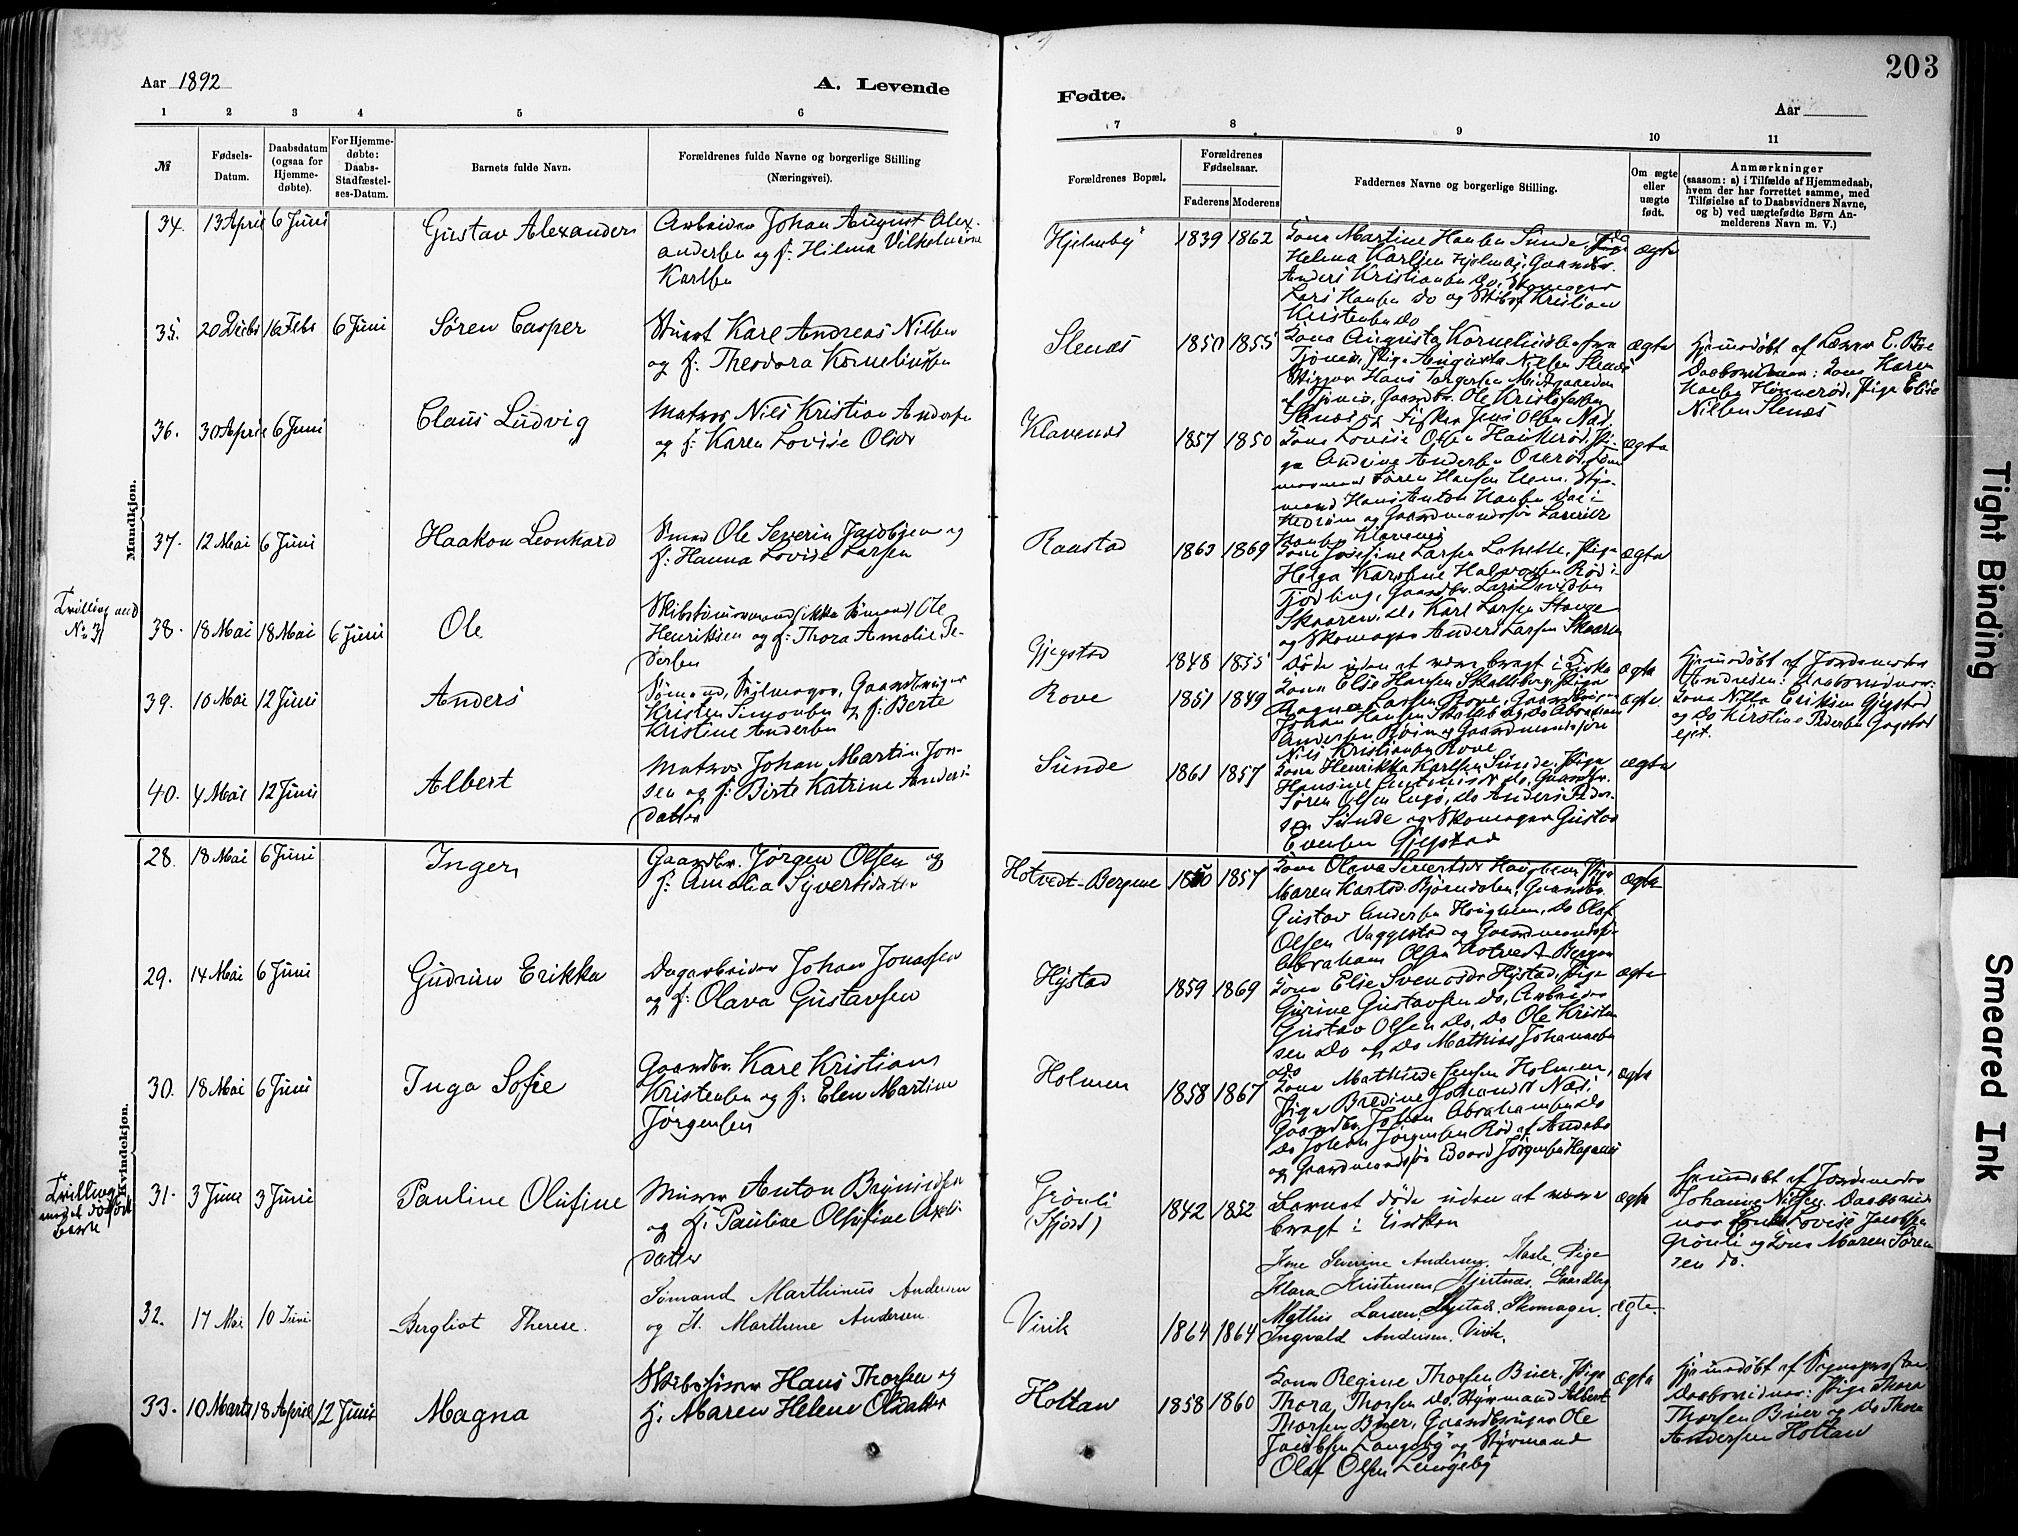 203
Aar 1892
A. Levende
Fødte.
Aar
1 2 3 4 5 6
7 8 9 10 11
№
Fødsels-
Datum.
Daabsdatum
(ogsaa for
Hjemme-
døbte).
For Hjemme-
døbte:
Daabs-
Stadfæstel-
ses-Datum.
Barnets fulde Navn.
Forældrenes fulde Navne og borgerlige Stilling
(Næringsvei).
Forældrenes Bopæl.
Forældrenes
Fødselsaar.
Faderens Moderens
Faddernes Navne og borgerlige Stilling.
Om ægte
eller
uægte
født.
Anmærkninger
(saasom: a) i Tilfælde af Hjemmedaab,
hvem der har forrettet samme, med
Tilføielse af to Daabsvidners Navne,
og b) ved uægtefødte Børn An-
melderens Navn m. V.)
Mandkjøn.
34. 13 April 6 Juni
Gustav Alexander
Arbeider Johan August Alex
andersen og H: Hilma Vilhelmine
Karlsen
Hjelmby 1839 1862
Kone Martine Hansen Sunde,
Helena Karlsen Hjelmby, Gaardbr.
Anders Kristiansen do, Skomager
Lars Hansen do og Skibst Kristian
Kristensen do
ægte
35. 20 Decbr 16 Febr 6 Juni
Søren Casper
Stuert Karl Andreas Nilsen
og H: Theodora Korneliussen
Slenæs 1850 1855
Kone Augusta Korneliussen fra
Tjømø, Pige Augusta Nilsen Slenæs
Skipper Hans Torgersen Midgaarden
af Tjømø, Gaardbr. Ole Kristoffersen
Slenæs og Fisker Jens Olsen Næs.
ægte
Hjemmedøbt af Lærer E. Bøe
Daabsvidner: Kone Karen
Hansen Hønnerød, Pige Elise
Nilsen Slenæs
36. 30 April 6 Juni
Claus Ludvig
Matros Nils Kristian Andersen
og H: Karen Lovise Olsdr
Klavenæs 1857 1850
Kone Lovise Olsen Haukerød, Pi-
ge Andrine Andersen
Søren Hansen Hem. Styr-
mand Hans Anton Hansen
Hedrum og Gaardmandssøn Laurits
Hansen Klavenæs
ægte
37. 12 Mai 6 Juni
Haakon Leonhard
Smed Ole Severin Jacobsen og
H: Hanna Lovise Larsen
Raastad 1863 1869
Kone Josefine Larsen Pige
Helga Karoline Halvorsen Rød i
Fjodling, Gaardbr. Lars
Skaaren, do Karl Larsen Hauge
og Skomager Anders Larsen Skaaren
ægte
Tvilling med
No 31
38. 18 Mai 18 Mai 6 Juni
Ole
Skibstømmermand (ikke Sømand) Ole
Henriksen og H: Thora Amalie Pe-
dersen
Gjegstad 1848 1855
Døde uden at være bragt i Kirke
ægte
Hjemmedøbt af Jordmoder
Andresen: Daabsvidner:
Kone Nilla Eriksen Gjegstad
og do Kirstine Pedersen Gjegstad
ejet.
39. 10 Mai 12 Juni
Anders
Sømand, Seilmager, Gaardbruger
Kristen Simonsen og H: Berte
Kristine Andersen
Rove 1851 1849
Kone Elise Hansen Skallberg, Pige
Larsen Rove, Gaardbruger
Johan Hansen do Abraham
Andersen og Gaardmandssøn
Nils Kristiansen Rove
ægte
40. 4 Mai 12 Juni
Albert
Matros Johan Martin Jon-
sen og H: Birte Katrine Anders-
datter
Sunde 1861 1857
Kone Henrikke Karlsen Sunde, Pige
Hansine do, Gaardbr.
Søren Olsen do Anders Peder-
sen Sunde og Skomager Gustav
Evensen Gjegstad
ægte
Kvindekjøn.
28. 18 Mai 6 Juni
Inger
Gaardbr. Jørgen Olsen og
H: Amalia Syversdatter
Hotvedt-Bergene 1850 1857
Kone Olava Sivertsdr Haughem Pige
Maren Karlsd. Bjørndalen, Gaardbr.
Gustav Andersen Haughem, do Olaf
Olsen Vaggestad og Gaardmandss.
Abraham Olsen Hotvedt Bergen
ægte
29. 14 Mai 6 Juni
Gudrun Erikka
Dagarbeider Johan Jonassen
og H: Olava Gustavsen
Hystad 1859 1869
Kone Elise Svendsdr Hystad, Pige
Gurine Gustavsen do, Arbeider
Gustav Olsen do, do Ole Kristen
sen do og do Mathias Johannesen
do
ægte
30. 18 Mai 6 Juni
Inga Sofie
Gaardbr. Karl Kristians
Kristensen og H: Elen Martine
Jørgensen
Holmen 1858 1867
Kone Mathilde Jensen Holmen,
Pige Bredine Johansdr Næs.
Gaardbr. Johan Abrahamsen do
do Johan Jørgensen Rød af Andebo
og Gaardmandssøn Edvard Jørgensen Haganæs
ægte
Tvilling
med et dødfødt
barn
31. 3 Juni 3 Juni
Pauline Olufine
Murer Anton Brynildsen
og H: Pauline Olufine Axels-
datter
Grønli
(Fjord) 1842 1852
Barnet døde uden at være
bragt i Kirken
ægte
Hjemmedøbt af Jordmoder
Johanne Nilsen. Daabsvid
ner Lovise Jacobsen
Grønli og Kone Maren Søren
sen do.
32. 17 Mai 10 Juni
Bergliot Therese.
Sømand Marthinus Andersen
og H. Marthine Andersen.
Virik 1864 1864
Kone Severine Andersen, Hasle, Pige
Klara Kristensen Hjertnæs, Gaardbg
Mathis Larsen, Hystad. Skomager
Ingvald Andersen. Virik.
ægte
33. 10 Marts 18 April 12 Juni
Magna
Skibstømmer Hans Thorsen og
H: Maren Helene Olsdatter
Holtan 1858 1860
Kone Regine Thorsen Buer, Pige
Thora Thorsen do, Styrmand Albert
Thorsen Buer, Gaardbruger Ole
Jacobsen Langeby og Styrmand
Olaf Olsen Langeby
ægte
Hjemmedøbt af Sognepresten
Daabsvidner: Pige Thora
Thorsen Buer og do Thora
Andersen Holtan
Tight Binding
Smeared Ink